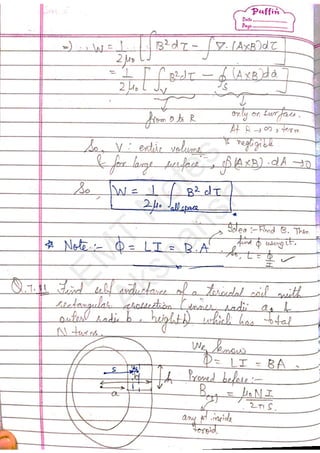 Puffin
Date
Page
⇒) W = 1/2μ₀ [ ∫ B² dτ - ∫ ∇.(A×B) dτ ]
= 1/2μ₀ [ ∫_V B² dτ - ∮_S (A×B) da ]
from 0 to R
only on surface.
At R → ∞, term
is negligible
So, V: entire volume
& for large surface, ∮(A×B).dA → 0
So, W = 1/2μ₀ ∫_all space B² dτ
Idea :- Find B. Then
find ϕ using it.
* Note :- Φ = LI = B.A
So, L = Φ/I ✓
Q.7.11 Find self inductance of a toroidal coil with
rectangular crossection (inner radii a, &
outer radii b, height h) which has total
N turns.
We know
Φ = LI = BA.
Proved before :-
B = μ₀NI/2πs.
any pt inside
toroid.
s
a
h